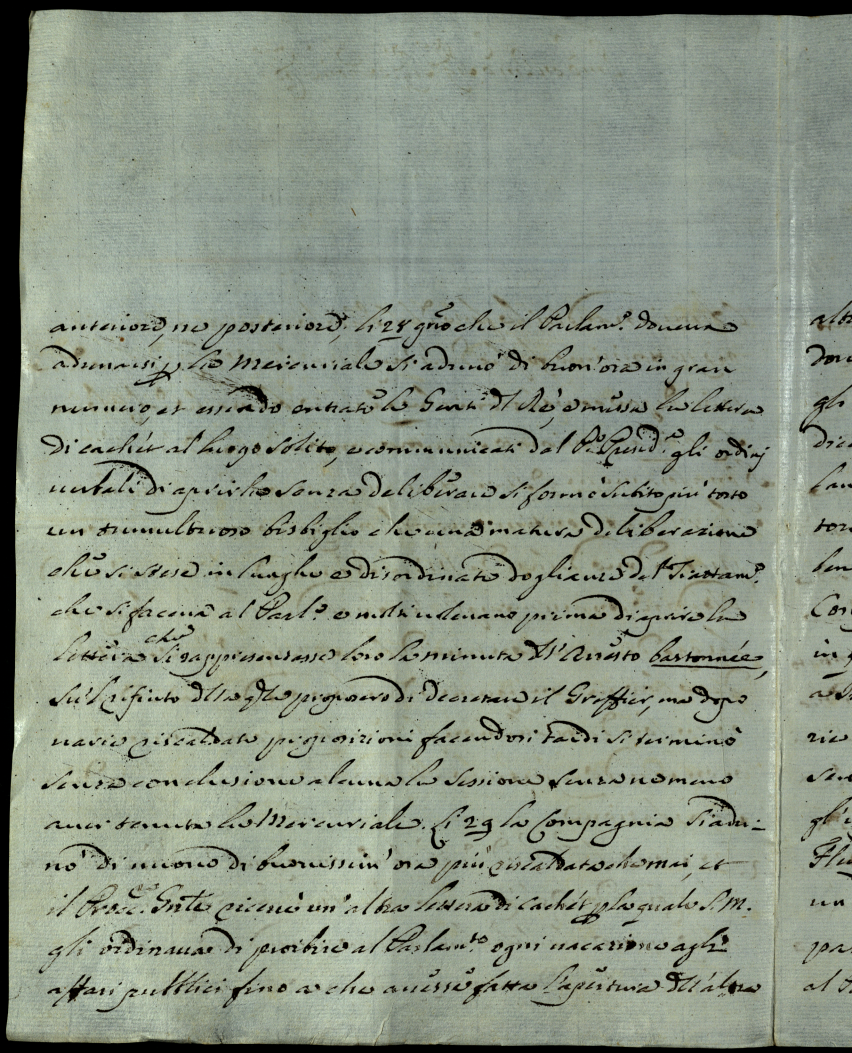 anteriore, ne posteriore; li 28 gño che il Parlam.º doveva
adunarsi p la Mercuriale si adunò di buon'ora in gran
numero, et essendo entrate le Genti dl Rè, e messa la lettera
di cachét al luogo solito, e communicati dal P.º Presid.e gli ordini
verbali di aprirla senza deliberare si formò subito piu' tosto
un tumultuoso bisbiglio che una matura deliberazione
che si stese in lunghe e disordinate doglianze del Trattam.º
che si faceva al Parl.º e molti volevano prima di aprire la
lettera che si rappresentasse loro la minuta dll'Arresto bastonnée,
sul rifiuto dlla qle proposero di decretare il Greffier, ma dopo
varie riscaldate proposizioni facendosi tardi si terminò
senza conclusione alcuna la sessione senza nemeno
aver tenuta la Mercuriale. Li 29 la Compagnia si adu-
nò di nuovo di buonissim'ora più riscaldata che mai, et
il Proc.e Gnle ricevè un'altra lettera di cachét p la quale S. M.
gli ordinava di proibire al Parlam.to ogni vacazione agli
affari pubblici fino a che avesse fatta l'apertura dll'altra